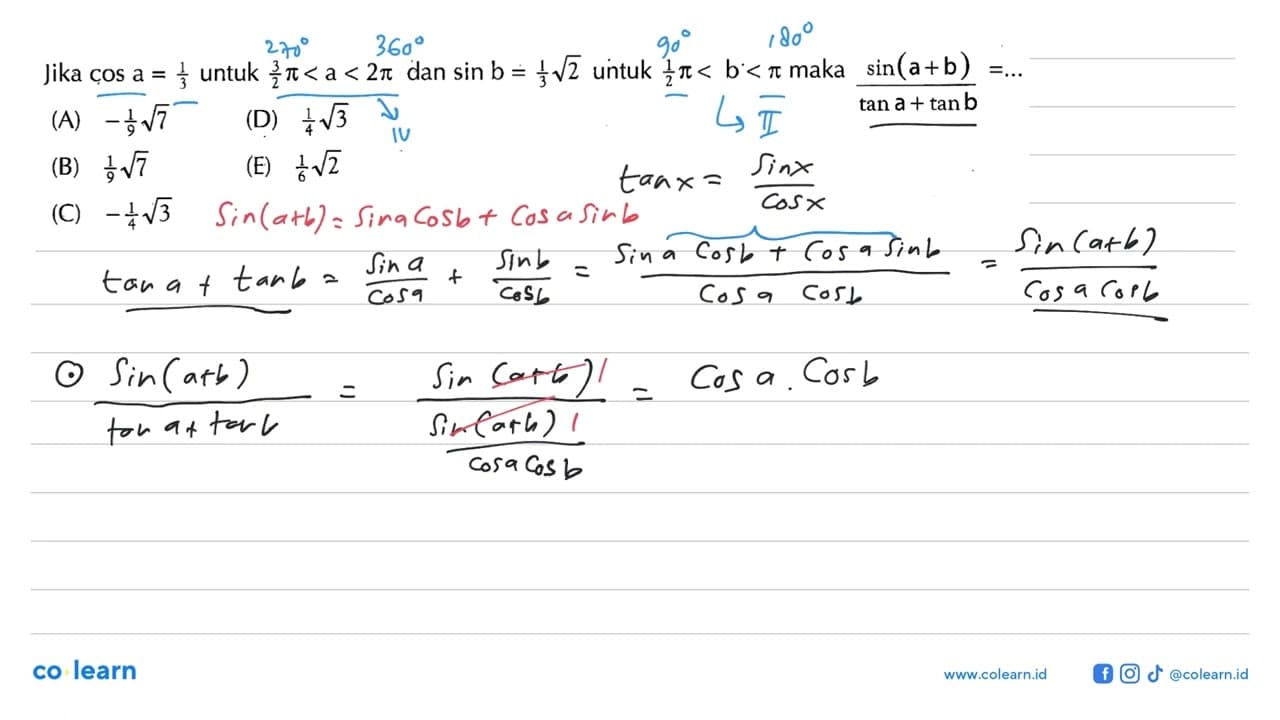 270° 360° 90° 180°
Jika cos a = 1/3 untuk 3/2 π < a < 2π dan sin b = 1/3 √2 untuk 1/2 π < b < π maka sin(a+b) / tan a + tan b = ...
(A) -1/9 √7 (D) 1/4 √3
IV
II
(B) 1/9 √7 (E) 1/6 √2
tan x = sin x / cos x
(C) -1/4 √3
Sin(a+b) = Sin a Cos b + Cos a Sin b
tan a + tan b = Sin a / Cos a + Sin b / Cos b = Sin a Cos b + Cos a Sin b / Cos a Cos b = Sin(a+b) / Cos a Cos b
Sin(a+b) / tan a + tan b = Sin(a+b) 1 / Sin(a+b) 1 / cos a Cos b = Cos a . Cos b
co learn
www.colearn.id
@colearn.id